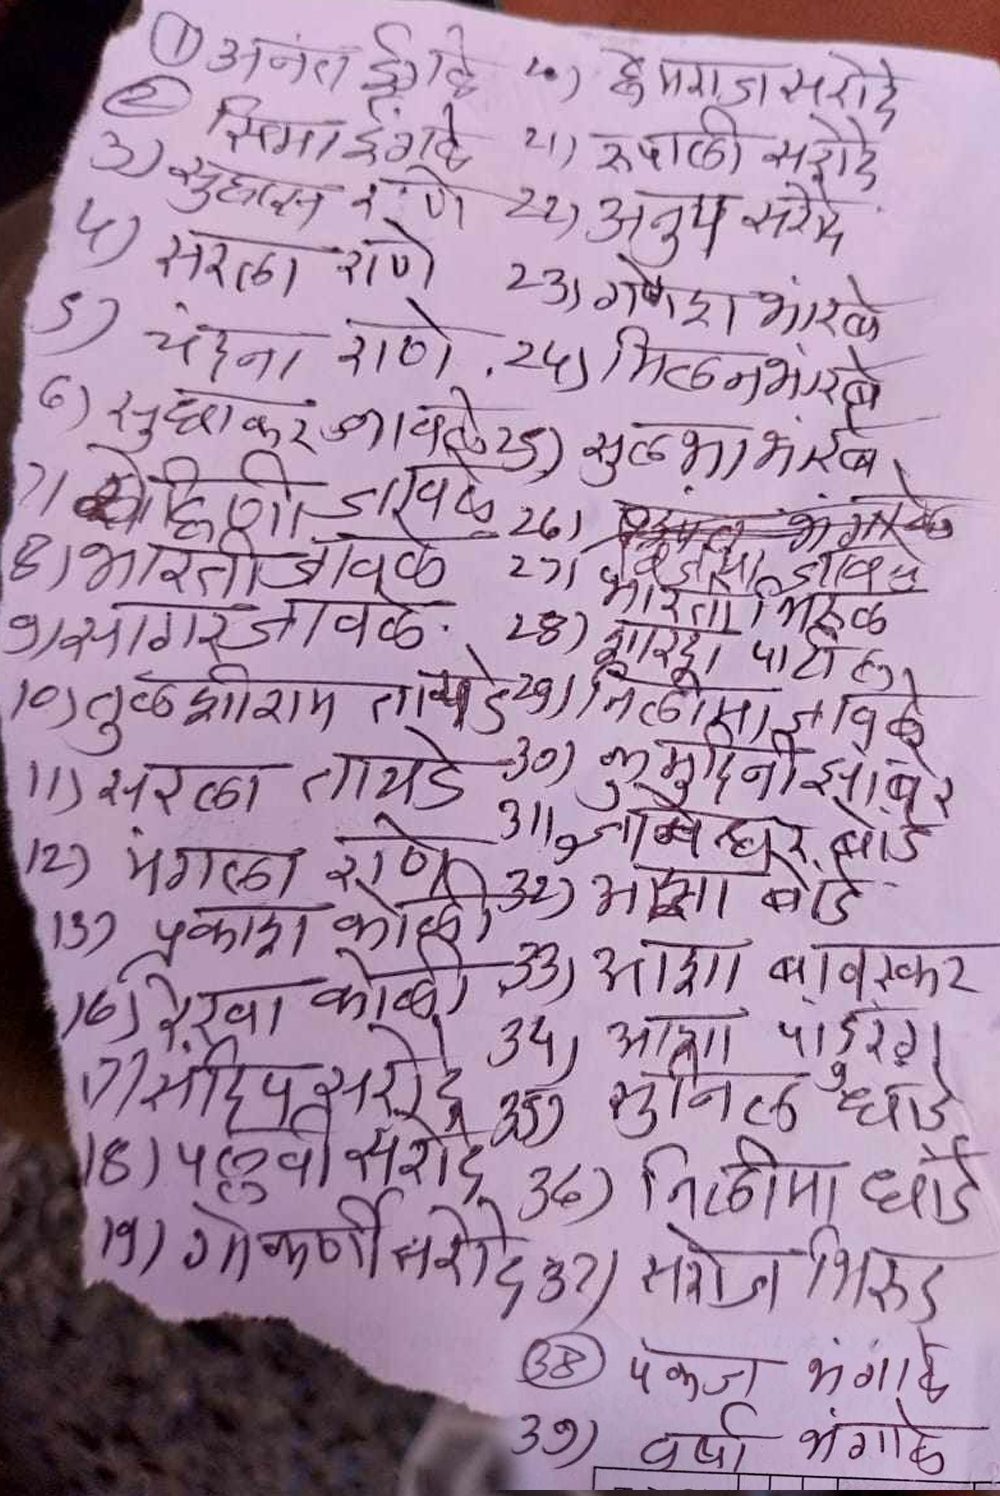 ① अनंत इंगळे
② सिमा इंगळे
3) सुहास राणे
4) सरला राणे
5) चंदना राणे
6) सुधाकर जावळे
7) रोहिणी जावळे
8) भारती जावळे
9) सागर जावळे
10) तुळशीराम तायडे
11) सरला तायडे
12) मंगला राणे
13) प्रकाश कोळी
16) रेखा कोळी
17) संदिप सरोदे
18) पल्लवी सरोदे
19) गोकर्णी सरोदे
20) हेमराज सरोदे
21) रुपाली सरोदे
22) अनुप सरोदे
23) गणेश भारंबे
24) मिलन भारंबे
25) सुलभा भारंबे
26) भंगाळे
27) विजया जावळे
भारती भिरुड
28) शारदा पाटील
29) निलीमा जावळे
30) कुमुदिनी झांबरे
31) बोंडे
32) आशा बोंडे
33) आशा बाविस्कर
34) आशा पांडुरंग
35) सुनिल धांडे
36) निलीमा धांडे
37) सरोज भिरुड
38 पंकज भंगाळे
39) वर्षा भंगाळे